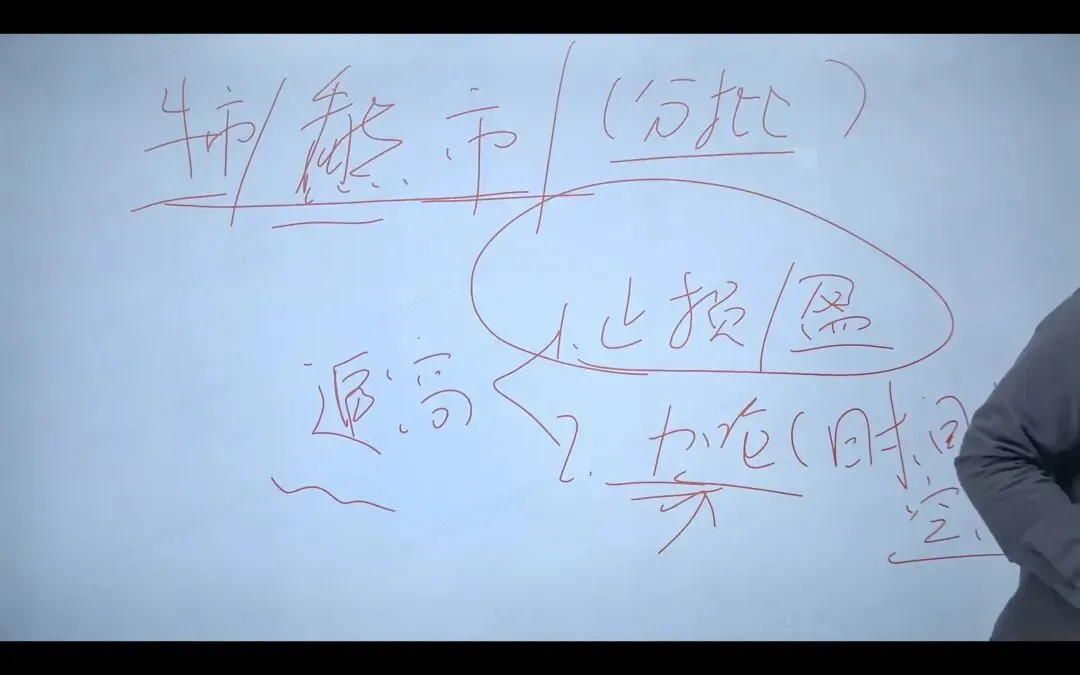 牛市/熊市/(分批)
1.止损/盈
追高
2.加仓(时间
空